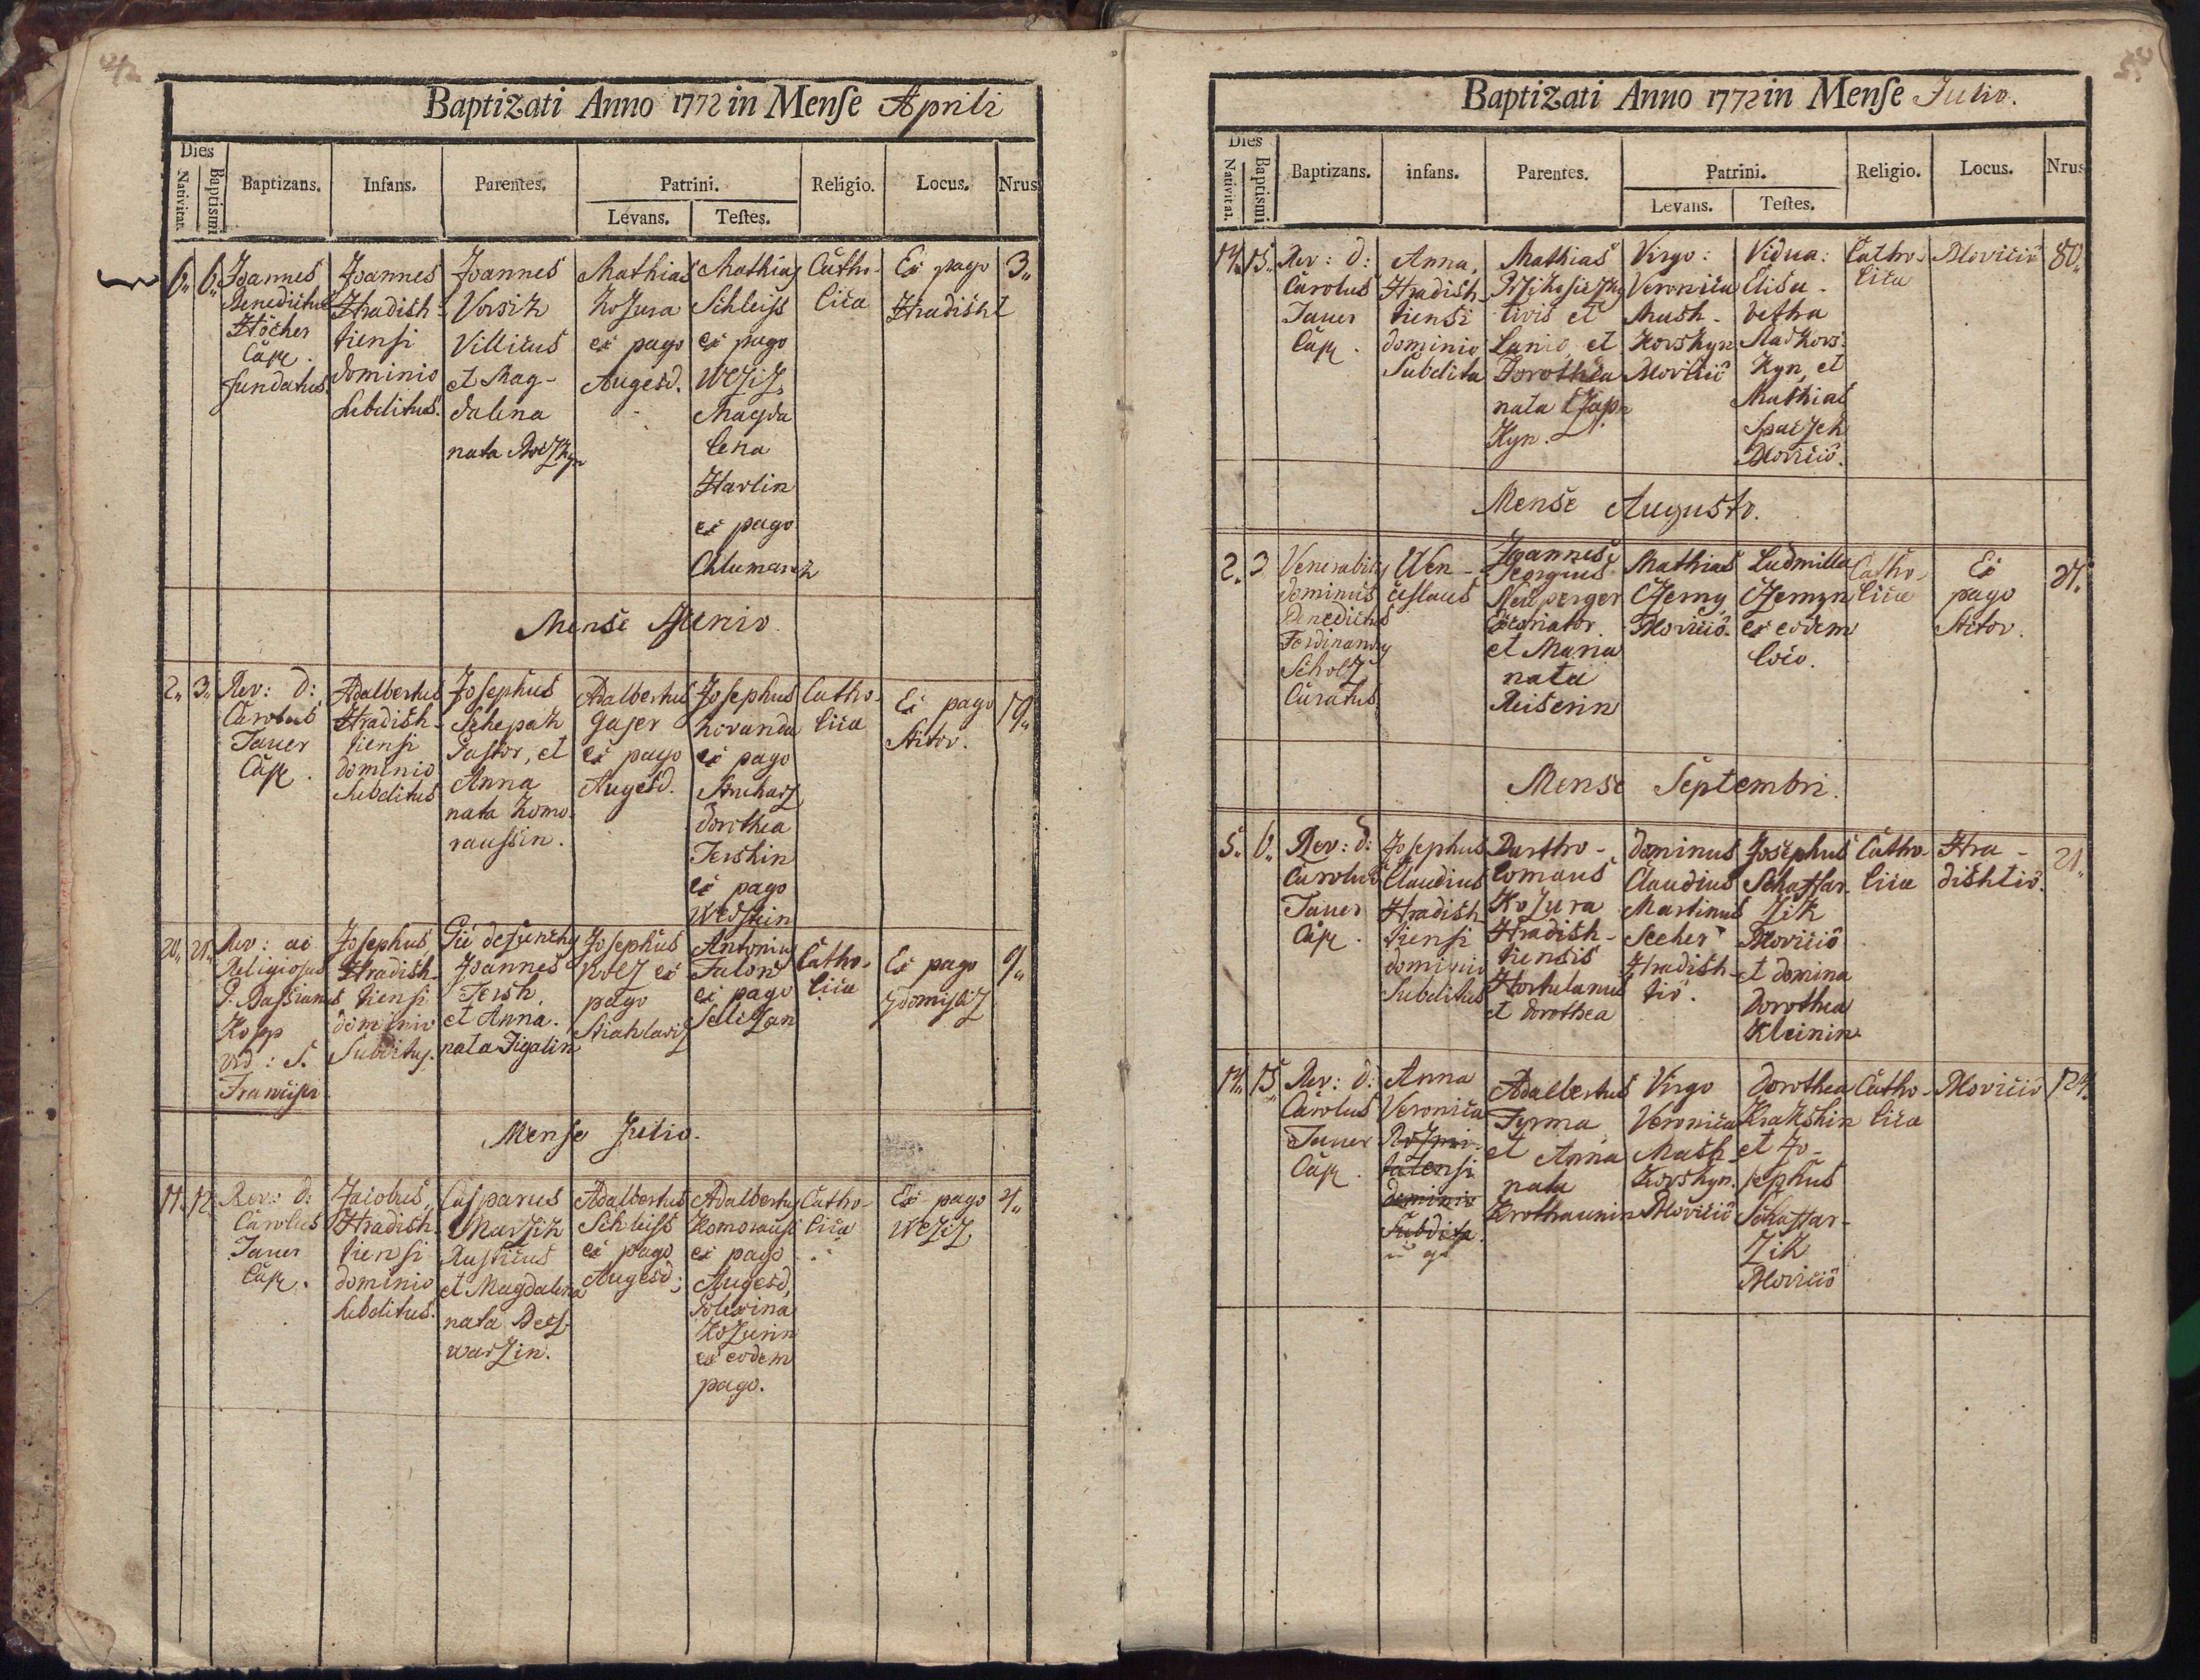 Baptizati Anno 1772 in Mense Aprili
Dies
Nativitat.
Baptismi
Baptizans.
Infans.
Parentes.
Patrini.
Levans.
Testes.
Religio.
Locus.
Nrus
6.
6.
Joannes
Benedictus
Höcher
Cap.
fundatus.
Joannes
Hradish-
tiensi
dominio
subditus.
Joannes
Vorsik
Villicus
et Mag-
dalena
nata
Mathias
Kozura
ex pago
Augesd.
Mathias
Schleiss
ex pago
Wcziz,
Magda
lena
Harlin
ex pago
Chlumanek
Catho-
lica
Ex pago
Hradisht
3.
Mense Junio
2.
3.
Rev: d:
Carolus
Tauer
Cap.
Adalbertus
Hradish-
tiensi
dominio
subditus
Josephus
Schepak
Pastor, et
Anna
nata Komo
raussin.
Adalbertus
Gaser
ex pago
Augesd.
Josephus
Kovanda
ex pago
Struharz
Dorothea
Tershin
ex pago
Catho-
lica
Ex pago
Stitov.
19.
20.
21.
Rev: ac
Religiosus
P. Bassianus
Kopp
ord: S.
Francisci
Josephus
Hradish-
tiensi
dominio
Subditus.
Pie defuncti
Joannes
Tersh,
et Anna.
nata Figalin
Josephus
Kolz ex
pago
Stiahlaviz
Antonius
Talon
ex pago
Sellczan
Catho-
lica
Ex pago
Zdomysliz
9.
Mense Julio.
11.
12
Rev: d:
Carolus
Tauer
Cap.
Jacobus,
Hradish-
tiensi
dominio
subditus.
Casparus
Marzik
Rusticus
et Magdalena
nata Bes-
warzin.
Adalbertus
Schleiss
ex pago
Augesd;
Adalbertus
Komorauss
ex pago
Augesd,
Polexina
Kozurin
ex eodem
pago.
Catho-
lica
Ex pago
Wcziz
4.
Baptizati Anno 1772 in Mense Julio.
Dies
Nativitat.
Baptismi
Baptizans.
infans.
Parentes.
Patrini.
Levans.
Testes.
Religio.
Locus.
Nrus
14.
15.
Rev: d:
Carolus
Tauer
Cap.
Anna,
Hradish-
tiensi
dominio
Subdita
Mathias
civis et
Lanio, et
Dorothea
nata Czap-
kyn.
Virgo:
Veronica
Mash-
kovskyn
Blovicio
Vidua:
Elisa-
betha
Sladkovs-
kyn, et
Mathias
Spaczek
Blovicio.
Catho-
lica
Blovicio
80.
Mense Augusto.
2.
3
Venerabilis
dominus
Benedictus
Ferdinandus
Scholz
Curatus
Wen-
ceslaus
Joannes
Georgius
Neuperger
Excoriator
et Maria
nata
Reiserin
Mathias
Czerny
Blovicio.
Ludmilla
Czernyn
ex eodem
loco.
Catho-
lica
Ex
pago
Stitov.
21.
Mense Septembri.
5.
6.
Rev: d:
Carolus
Tauer
Cap.
Josephus
Claudius
Hradish-
tiensi
dominio
Subditus
Bartho-
lomaus
Kozura
Hradish-
tiensis
Hortulanus
et Dorothea
Dominus
Claudius
Martinus
Secher
Hradish-
tio.
Josephus
Schaffar-
zik
Blovicio
et domina
Dorothea
Kleinin
Catho-
lica
Hra-
dishtio.
21.
14.
15
Rev: d:
Carolus
Tauer
Cap.
Anna
Veronica
Rozmi-
talensi
dominio
Subdita.
Adalbertus
Fyrma
et Anna
nata
Krothaunin
Virgo
Veronica
Mash-
kovskyn.
Blovicio
Dorothea
Krakshin
et Jo-
sephus
Schaffar-
zik
Blovicio
Catho-
lica
Blovicio
124.